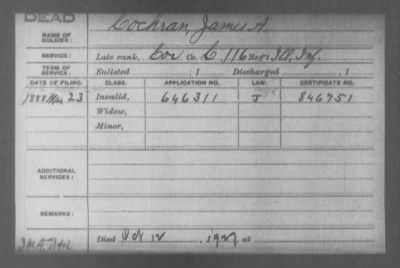 DEAD
NAME OF SOLDIER: Cochran, James A.
SERVICE: Late rank, Cor Co. C, 116 Reg't Ill. Inf.
TERM OF SERVICE: Enlisted , 1 Discharged , 1
DATE OF FILING. CLASS. APPLICATION NO. LAW. CERTIFICATE NO.
1888 23 Invalid, 646311 J 846751
Widow,
Minor,
ADDITIONAL SERVICES:
REMARKS:
Died 12, 1927, at